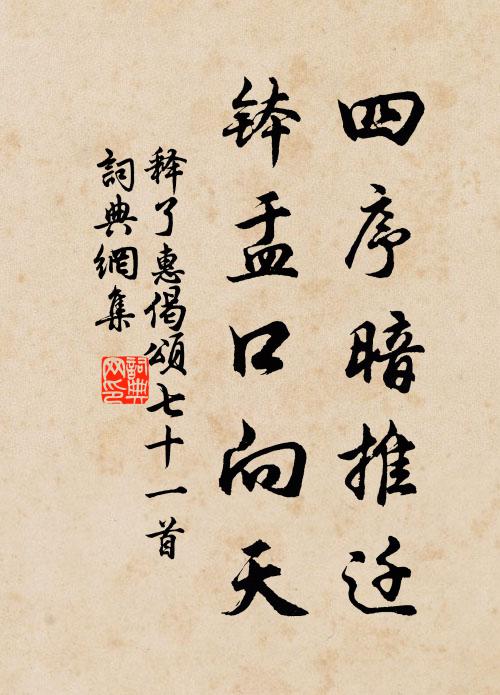 四序暗推迁
钵盂口向天
释了惠偈颂七十一首
詞典網集
詞典
网印